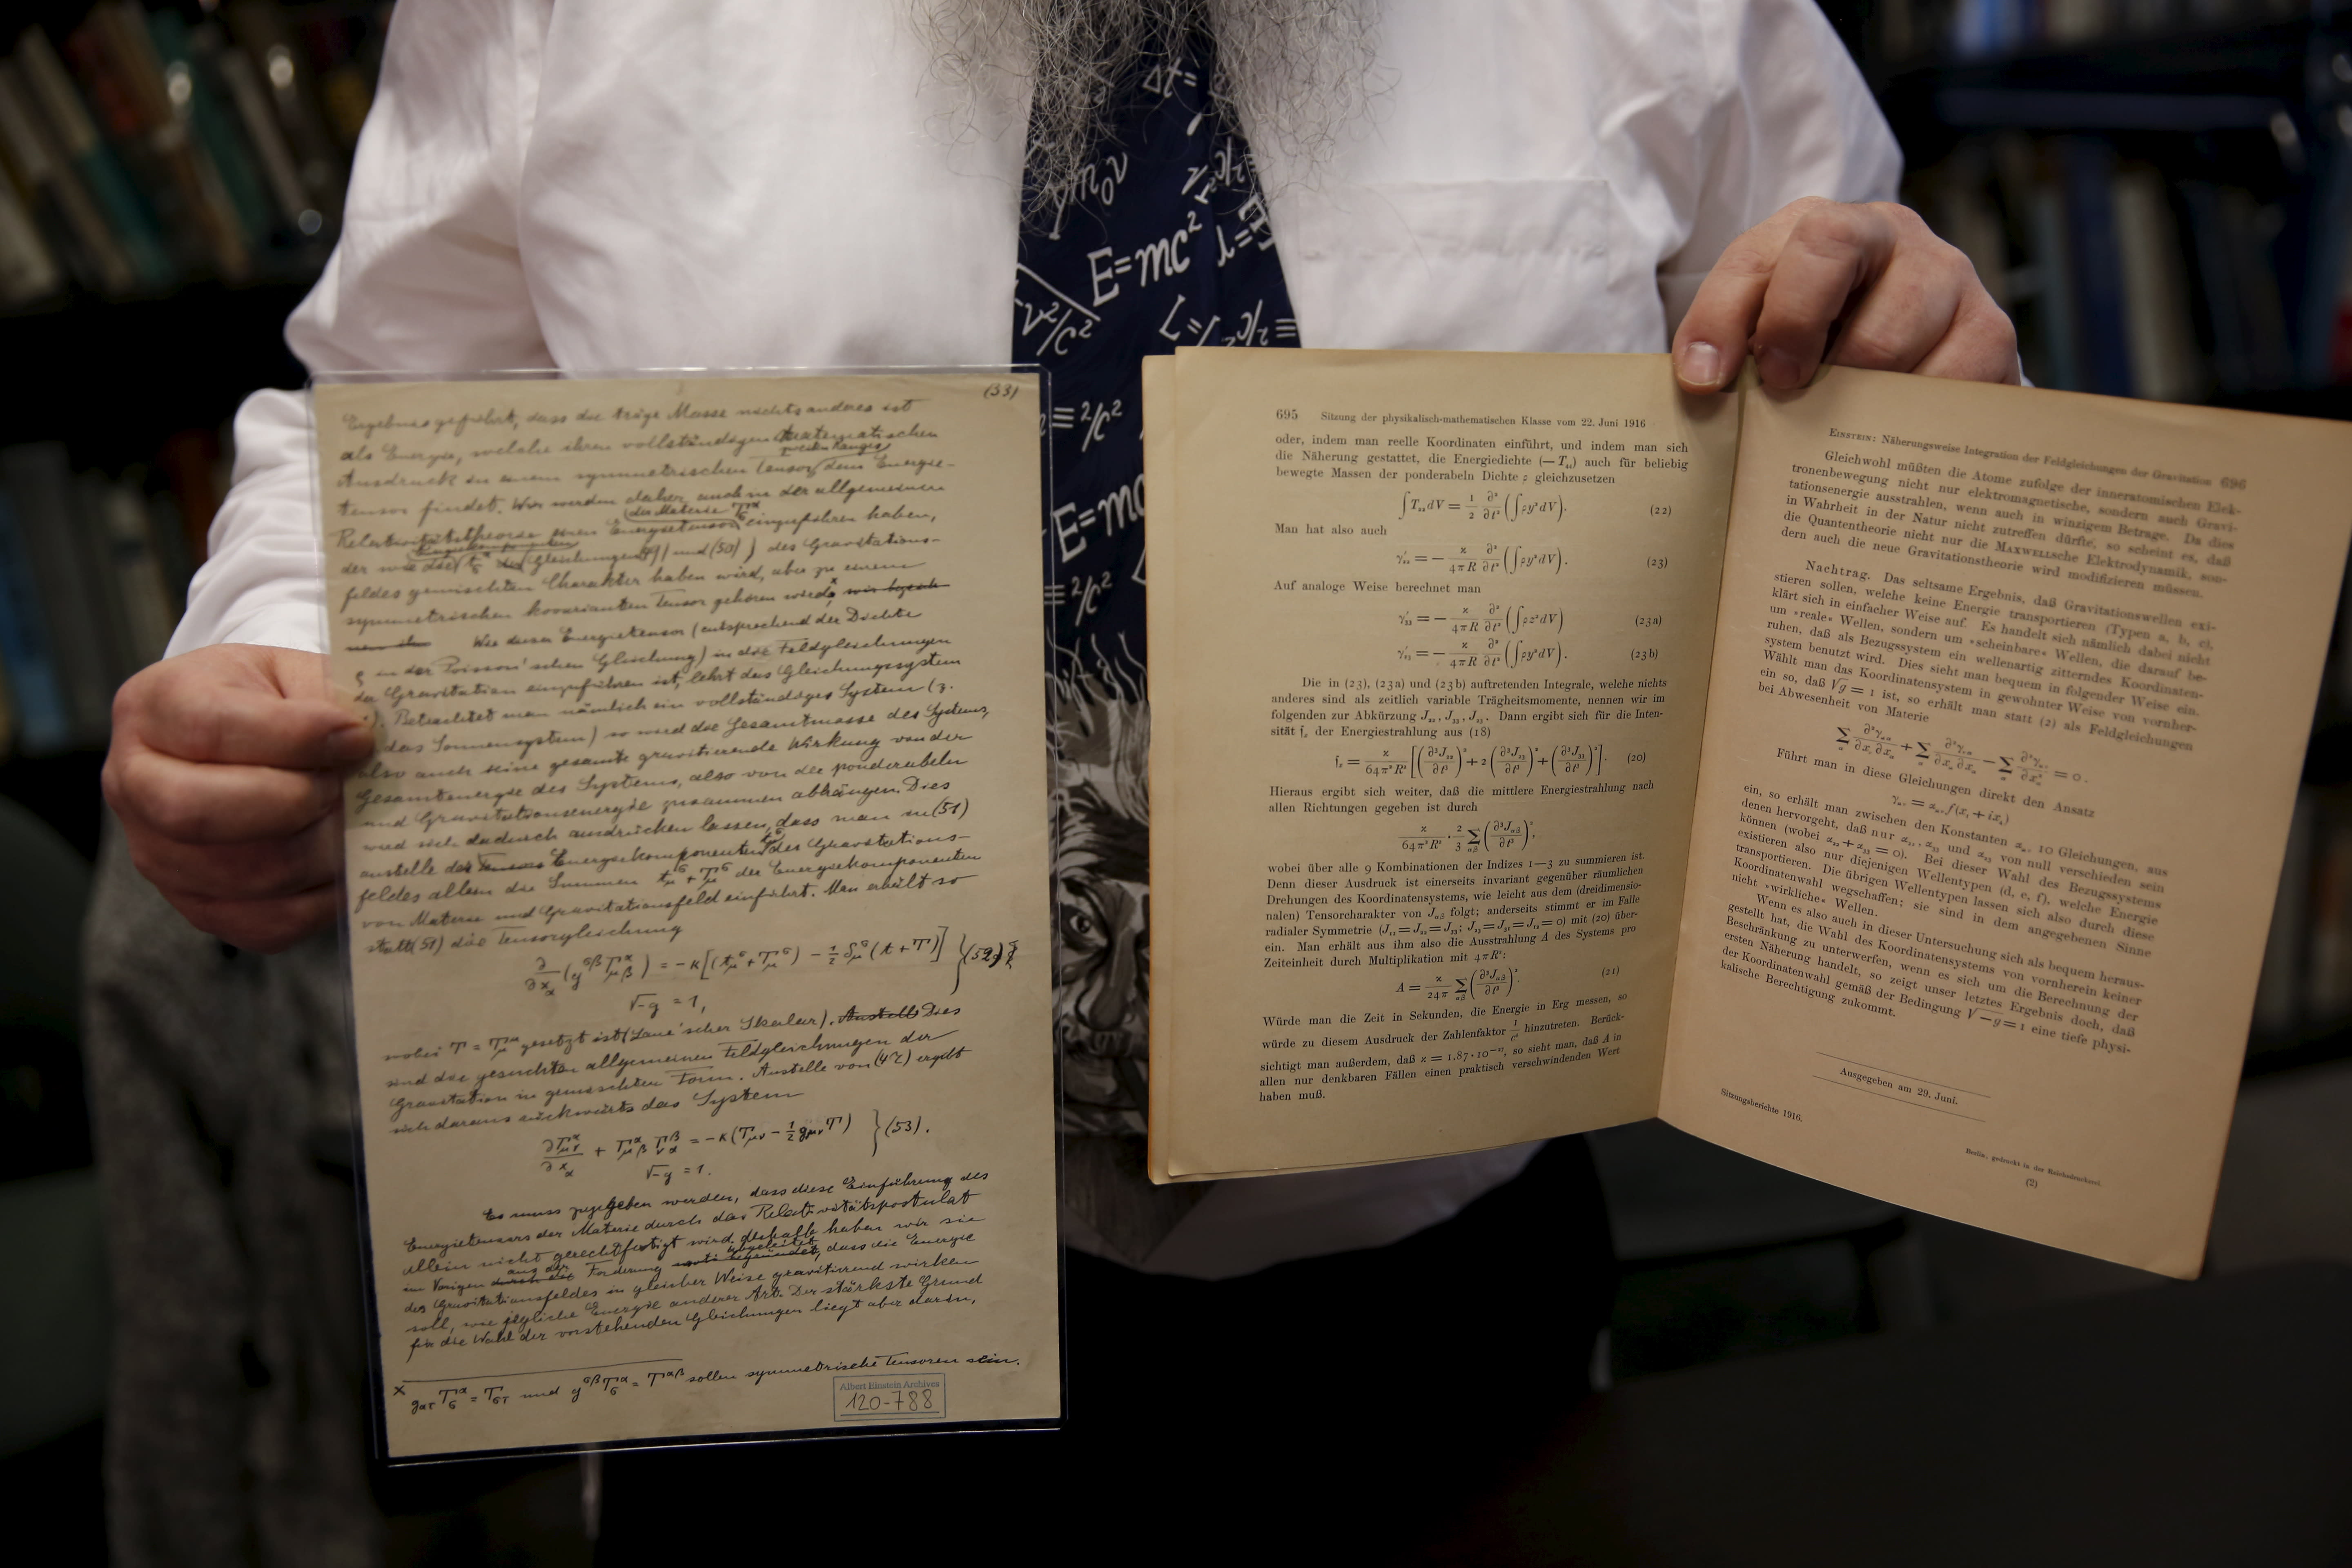 Δt=
m₀v
E=mc²
v²/c²
=²/c²
E=mc
=²/c²
(33)
Ergebnis geführt, dass die träge Masse nichts anderes ist
als Energie, welche ihren vollständigen mathematischen
zweiten Ranges
Ausdruck in einem symmetrischen Tensor, dem Energie-
tensor findet. Wir werden daher auch in der allgemeinen
der Materie T_σ^α
Relativitätstheorie einen Energietensor einzuführen haben,
der wie die t_σ^α (Gleichungen (49) und (50)) des Gravitations-
feldes gemischten Charakter haben wird, aber zu einem
symmetrischen kovarianten Tensor gehören wird x
Wie dieser Energietensor (entsprechend der Dichte
ρ in der Poisson'schen Gleichung) in die Feldgleichungen
der Gravitation einzuführen ist, lehrt das Gleichungssystem
Betrachtet man nämlich ein vollständiges System (z.
das Sonnensystem) so wird die Gesamtmasse des Systems,
also auch seine gesamte gravitierende Wirkung von der
Gesamtenergie des Systems, also von der ponderabeln
und Gravitationsenergie zusammen abhängen. Dies
wird sich dadurch ausdrücken lassen, dass man in (51)
anstelle der Energiekomponenten t_μ^σ des Gravitations-
feldes allein die Summen t_μ^σ + T_μ^σ der Energiekomponenten
von Materie und Gravitationsfeld einführt. Man erhält so
statt (51) die Tensorgleichung
∂/∂x_α (g^σβ Γ_μβ^α) = −κ[(t_μ^σ + T_μ^σ) − ½ δ_μ^σ (t + T)] } (52)
√−g = 1,
wobei T = T_μ^μ gesetzt ist (Laue'scher Skalar). Dies
sind die gesuchten allgemeinen Feldgleichungen der
Gravitation in gemischter Form. Anstelle von (47) ergibt
sich daraus rückwärts das System
∂Γ_μν^α/∂x_α + Γ_μβ^α Γ_να^β = −κ(T_μν − ½ g_μν T) } (53).
√−g = 1.
Es muss zugegeben werden, dass diese Einführung des
Energietensors der Materie durch das Relativitätspostulat
allein nicht gerechtfertigt wird, deshalb haben wir sie
abgeleitet
im Vorigen aus der Forderung, dass die Energie
des Gravitationsfeldes in gleicher Weise gravitierend wirken
soll, wie jegliche Energie anderer Art. Der stärkste Grund
für die Wahl der vorstehenden Gleichungen liegt aber darin,
x g_ατ T_σ^α = T_στ und g^σβ T_σ^α = T^αβ sollen symmetrische Tensoren sein.
Albert Einstein Archives
120-788
695 Sitzung der physikalisch-mathematischen Klasse vom 22. Juni 1916
oder, indem man reelle Koordinaten einführt, und indem man sich
die Näherung gestattet, die Energiedichte (−T₄₄) auch für beliebig
bewegte Massen der ponderabeln Dichte ρ gleichzusetzen
∫T₂₂dV = 1/2 ∂²/∂t² (∫ρy²dV). (22)
Man hat also auch
γ'₂₂ = − κ/4πR ∂²/∂t² (∫ρy²dV). (23)
Auf analoge Weise berechnet man
γ'₃₃ = − κ/4πR ∂²/∂t² (∫ρz²dV) (23a)
γ'₂₃ = − κ/4πR ∂²/∂t² (∫ρyzdV). (23b)
Die in (23), (23a) und (23b) auftretenden Integrale, welche nichts
anderes sind als zeitlich variable Trägheitsmomente, nennen wir im
folgenden zur Abkürzung J₂₂, J₃₃, J₂₃. Dann ergibt sich für die Inten-
sität fₓ der Energiestrahlung aus (18)
fₓ = κ/64π²R² [(∂³J₂₂/∂t³)² + 2(∂³J₂₃/∂t³)² + (∂³J₃₃/∂t³)²]. (20)
Hieraus ergibt sich weiter, daß die mittlere Energiestrahlung nach
allen Richtungen gegeben ist durch
κ/64π²R² · 2/3 Σ_αβ (∂³J_αβ/∂t³)²,
wobei über alle 9 Kombinationen der Indizes 1—3 zu summieren ist.
Denn dieser Ausdruck ist einerseits invariant gegenüber räumlichen
Drehungen des Koordinatensystems, wie leicht aus dem (dreidimensio-
nalen) Tensorcharakter von J_αβ folgt; anderseits stimmt er im Falle
radialer Symmetrie (J₁₁=J₂₂=J₃₃; J₂₃=J₃₁=J₁₂=0) mit (20) über-
ein. Man erhält aus ihm also die Ausstrahlung A des Systems pro
Zeiteinheit durch Multiplikation mit 4πR²:
A = κ/24π Σ_αβ (∂³J_αβ/∂t³)². (21)
Würde man die Zeit in Sekunden, die Energie in Erg messen, so
würde zu diesem Ausdruck der Zahlenfaktor 1/c⁴ hinzutreten. Berück-
sichtigt man außerdem, daß κ = 1.87·10⁻²⁷, so sieht man, daß A in
allen nur denkbaren Fällen einen praktisch verschwindenden Wert
haben muß.
EINSTEIN: Näherungsweise Integration der Feldgleichungen der Gravitation 696
Gleichwohl müßten die Atome zufolge der inneratomischen Elek-
tronenbewegung nicht nur elektromagnetische, sondern auch Gravi-
tationsenergie ausstrahlen, wenn auch in winzigem Betrage. Da dies
in Wahrheit in der Natur nicht zutreffen dürfte, so scheint es, daß
die Quantentheorie nicht nur die MAXWELLsche Elektrodynamik, son-
dern auch die neue Gravitationstheorie wird modifizieren müssen.
Nachtrag. Das seltsame Ergebnis, daß Gravitationswellen exi-
stieren sollen, welche keine Energie transportieren (Typen a, b, c),
klärt sich in einfacher Weise auf. Es handelt sich nämlich dabei nicht
um »reale« Wellen, sondern um »scheinbare« Wellen, die darauf be-
ruhen, daß als Bezugssystem ein wellenartig zitterndes Koordinaten-
system benutzt wird. Dies sieht man bequem in folgender Weise ein.
Wählt man das Koordinatensystem in gewohnter Weise von vornher-
ein so, daß √g = 1 ist, so erhält man statt (2) als Feldgleichungen
bei Abwesenheit von Materie
Führt man in diese Gleichungen direkt den Ansatz
ein, so erhält man zwischen den Konstanten 10 Gleichungen, aus
denen hervorgeht, daß nur α₂₂, α₃₃ und α₂₃ von null verschieden sein
können (wobei α₂₂ + α₃₃ = 0). Bei dieser Wahl des Bezugssystems
existieren also nur diejenigen Wellentypen (d, e, f), welche Energie
transportieren. Die übrigen Wellentypen lassen sich also durch diese
Koordinatenwahl wegschaffen; sie sind in dem angegebenen Sinne
nicht »wirkliche« Wellen.
Wenn es also auch in dieser Untersuchung sich als bequem heraus-
gestellt hat, die Wahl des Koordinatensystems von vornherein keiner
Beschränkung zu unterwerfen, wenn es sich um die Berechnung der
ersten Näherung handelt, so zeigt unser letztes Ergebnis doch, daß
der Koordinatenwahl gemäß der Bedingung √−g = 1 eine tiefe physi-
kalische Berechtigung zukommt.
Ausgegeben am 29. Juni.
Sitzungsberichte 1916.
Berlin, gedruckt in der Reichsdruckerei.
(2)